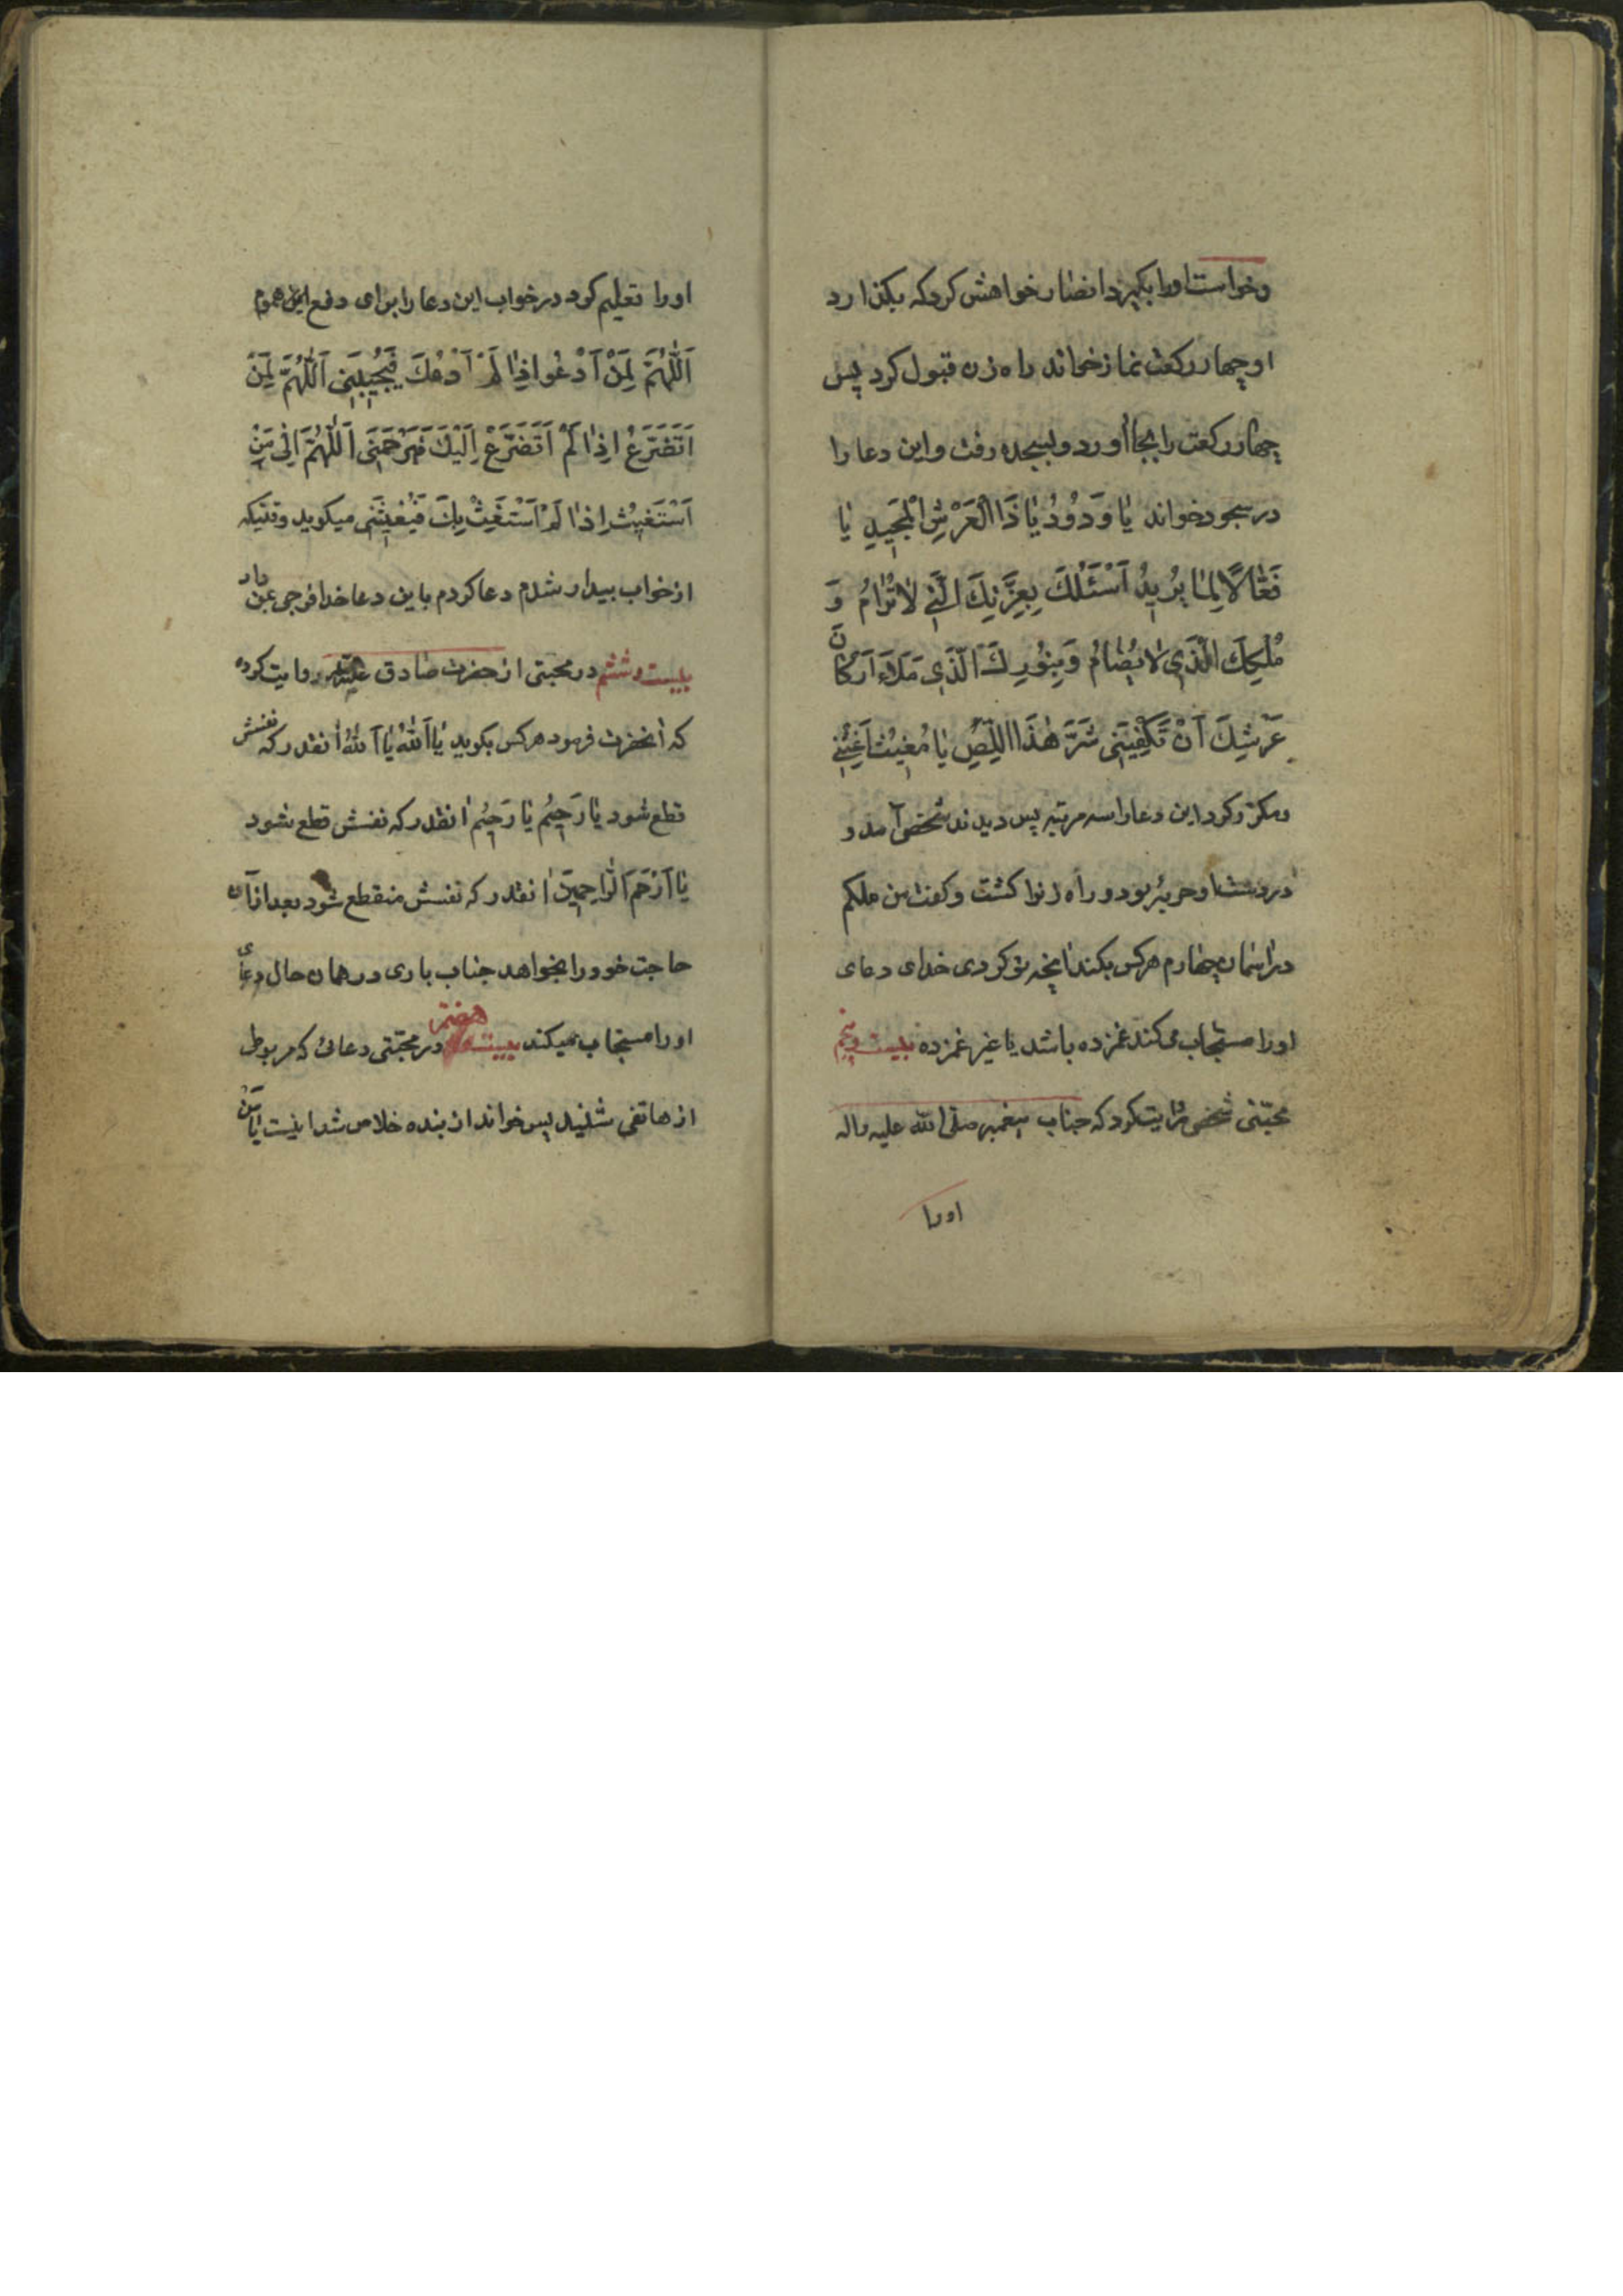 وخواست اورا بکیرد انصار خواهش کرد که بکذارد
او چهار رکعت نماز خواند راه زن قبول کرد پس
چهار رکعت را بجا آورد و بسجده رفت و این دعا را
در سجود خواند یٰا وَدُودُ یٰا ذَا الْعَرْشِ الْمَجِیدِ یٰا
فَعّٰالًا لِمٰا یُرِیدُ اَسْئَلُكَ بِعِزَّتِكَ الَّتِي لٰا تُرٰامُ وَ
مُلْکِكَ الَّذِي لٰا یُضٰامُ وَبِنُورِكَ الَّذِي مَلَاءَ اَرْکٰانَ
عَرْشِكَ اَنْ تَکْفِیَنِی شَرَّ هٰذَا اللِّصِ یٰا مُغِیثُ اَغِثْنِي
ومکرّر کرد این دعارا سه مرتبه پس دیدند شخصی آمد و
در دستش او حربۀ بود و راه زنرا کشت و کفت من ملکم
در اسمان چهارم هرکس بکند انچه تو کردی خدای دعای
اورا مستجاب میکند غمزده باشد یا غیر غمزده بیست و پنجم
مجتنی شخصی روایت کرد که جناب پیغمبر صلی الله علیه واله
اورا
اورا تعلیم کرد در خواب این دعا را برای دفع این هموم
اَللّٰهُمَّ لِمَنْ اَدْعُوا اِذٰا لَمْ اَدْعُكَ فَیُجِیبَنِی اَللّٰهُمَّ لِمَنْ
اَتَضَرَّعُ اِذٰا لَمْ اَتَضَرَّعْ اِلَیْكَ فَیَرْحَمَنِی اَللّٰهُمَّ اِلٰی مَنْ
اَسْتَغِیثُ اِذٰا لَمْ اَسْتَغِیثْ بِكَ فَیُغِیثَنِی میکوید وقتیکه
از خواب بیدار شدم دعا کردم باین دعا خدا فرجی بمن داد
بیست و ششم در مجتنی از حضرت صادق علیه روایت کرده
که انحضرت فرمود هرکس بکوید یٰا اَللّٰهُ یٰا اَللّٰهُ انقدر که نفسش
قطع شود یٰا رَحِیمُ یٰا رَحِیمُ انقدر که نفسش قطع شود
یٰا اَرْحَمَ الرّٰاحِمِینَ انقدر که نفسش منقطع شود بعد از آن
حاجت خود را بخواهد جناب باری در همان حال دعای
اورا مستجاب میکند بیست هفتم در مجتنی دعائی که مربوطی
از هاتفی شنید پس خواند از بنده خلاص شد اینست یٰا مَنْ